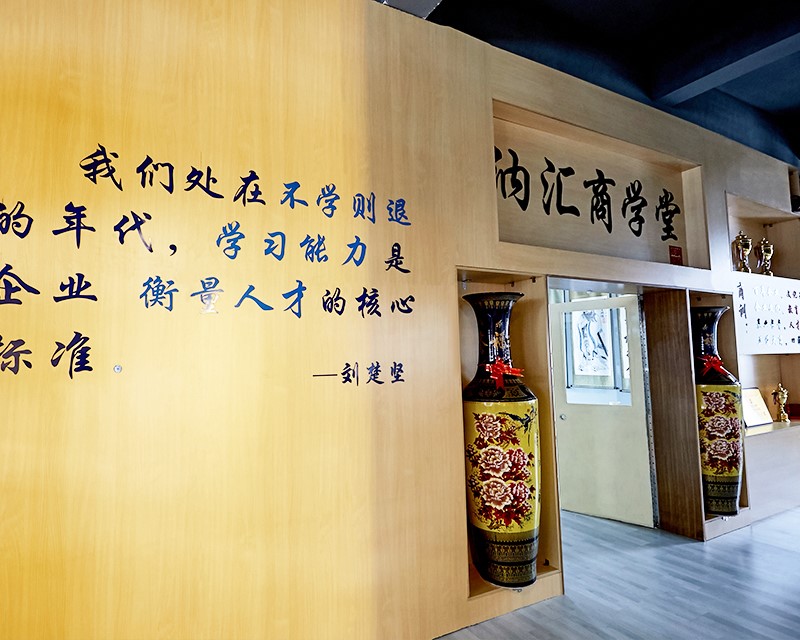 我们处在不学则退
的年代，学习能力是
企业 衡量人才的核心
标准。
—刘楚坚
纳汇商学堂
商训：